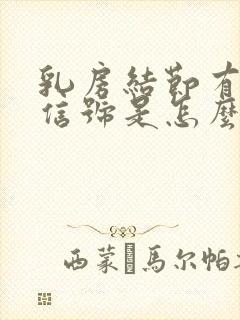 乳房結節有
信號是怎麼
西蒙 馬尔帕